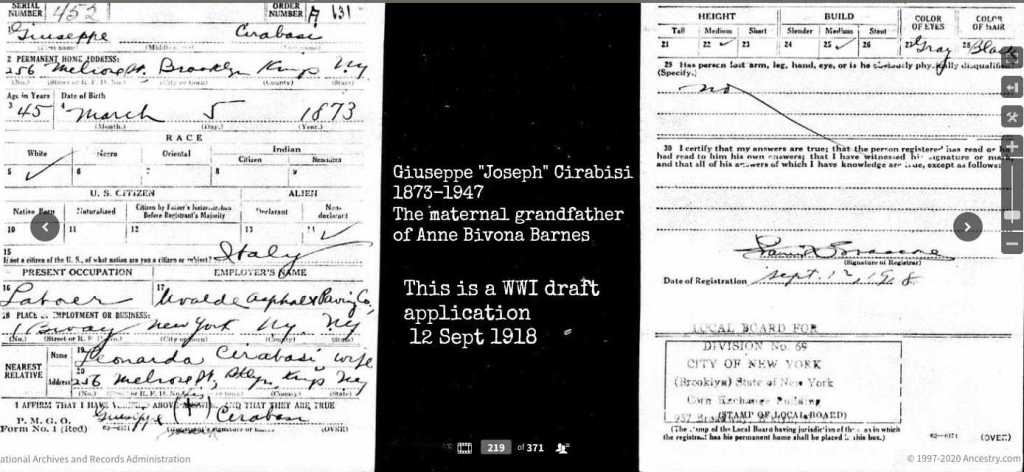 SERIAL NUMBER 452 ORDER NUMBER A 131
Giuseppe Cirabasi
2 PERMANENT HOME ADDRESS:
256 Melrose St, Brooklyn Kings NY
(No.) (Street or R. F. D. No.) (City or town) (County) (State)
Age in Years Date of Birth
3 45 4 March 5 1873
(Month.) (Day.) (Year.)
RACE
White Negro Oriental Indian
Citizen Noncitizen
5 ✓ 6 7 8 9
U. S. CITIZEN ALIEN
Native Born Naturalized Citizen by Father's Naturalization Before Registrant's Majority Declarant Non-declarant
10 11 12 13 14 ✓
15
If not a citizen of the U. S., of what nation are you a citizen or subject? Italy
PRESENT OCCUPATION EMPLOYER'S NAME
16 Laborer 17 Uvalde Asphalt Paving Co,
18 PLACE OF EMPLOYMENT OR BUSINESS:
1 Broay New York Ny. Ny
(No.) (Street or R. F. D. No.) (City or town) (County) (State)
NEAREST RELATIVE
Name 19 Leonarda Cirabasi wife
Address 20 256 Melrose St, Bklyn Kings Ny
(No.) (Street or R. F. D. No.) (City or town) (County) (State)
I AFFIRM THAT I HAVE VERIFIED ABOVE ANSWERS AND THAT THEY ARE TRUE
P. M. G. O.
Form No. 1 (Red) Giuseppe (+) Cirabasi
(Registrant's signature or mark) (OVER)
ational Archives and Records Administration
Giuseppe "Joseph" Cirabisi
1873-1947
The maternal grandfather
of Anne Bivona Barnes
This is a WWI draft
application
12 Sept 1918
219 of 371
HEIGHT BUILD COLOR OF EYES COLOR OF HAIR
Tall Medium Short Slender Medium Stout
21 22 ✓ 23 24 25 ✓ 26 27 Gray 28 Blac
29 Has person lost arm, leg, hand, eye, or is he obviously physically disqualified
(Specify.)
no
30 I certify that my answers are true; that the person registered has read or h
had read to him his own answers; that I have witnessed his signature or mark,
and that all of his answers of which I have knowledge are true, except as follows:
(Signature of Registrar)
Date of Registration Sept. 12 1918
LOCAL BOARD FOR
DIVISION No. 69
CITY OF NEW YORK
(Brooklyn) State of New York
Corn Exchange Building
957 Broadway,
(STAMP OF LOCAL BOARD)
(The stamp of the Local Board having jurisdiction of the area in which
the registrant has his permanent home shall be placed in this box.)
63-6171 (OVER)
© 1997-2020 Ancestry.com